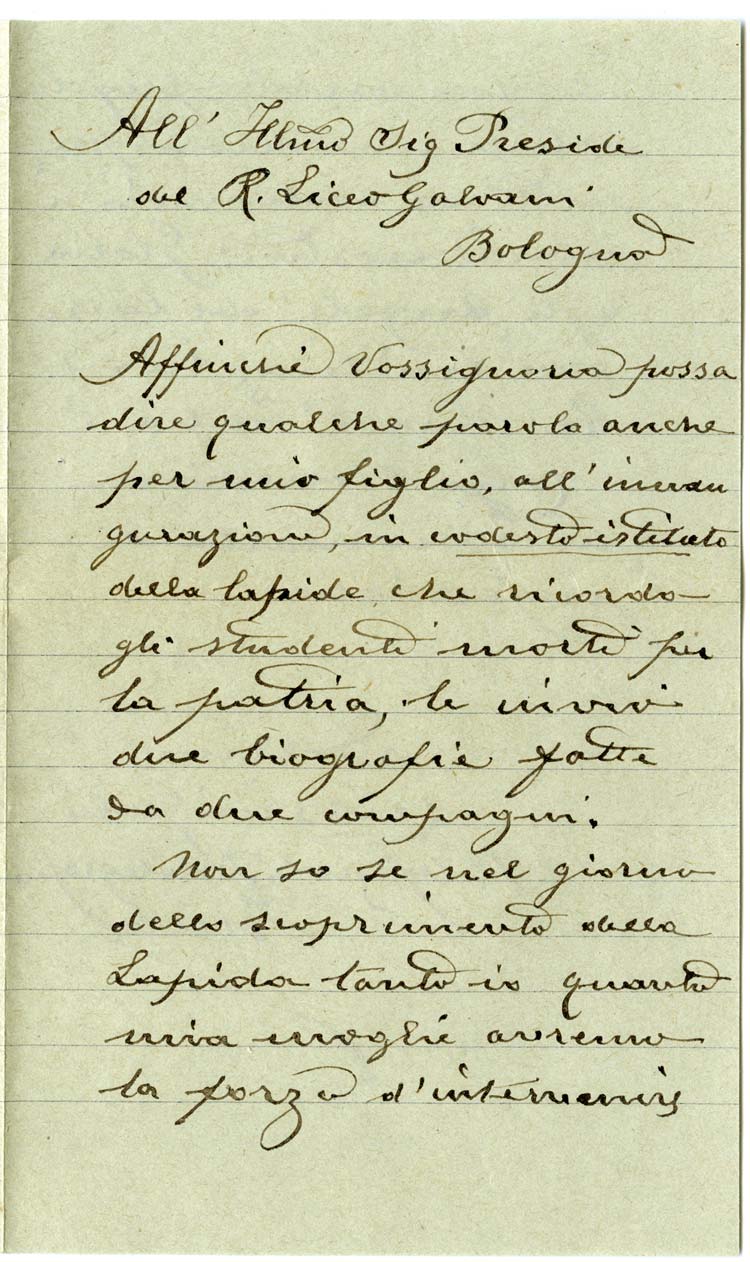 All' Illmo Sig Preside
del R. Liceo Galvani
Bologna
Affinchè Vossignoria possa
dire qualche parola anche
per mio figlio, all'inau
gurazione, in codesto istituto
della lapide che ricorda
gli studenti morti per
la patria, le invio
due biografie fatte
da due compagni.
Non so se nel giorno
dello scoprimento della
Lapida tanto io quanto
mia moglie avremo
la forza d'intervenire